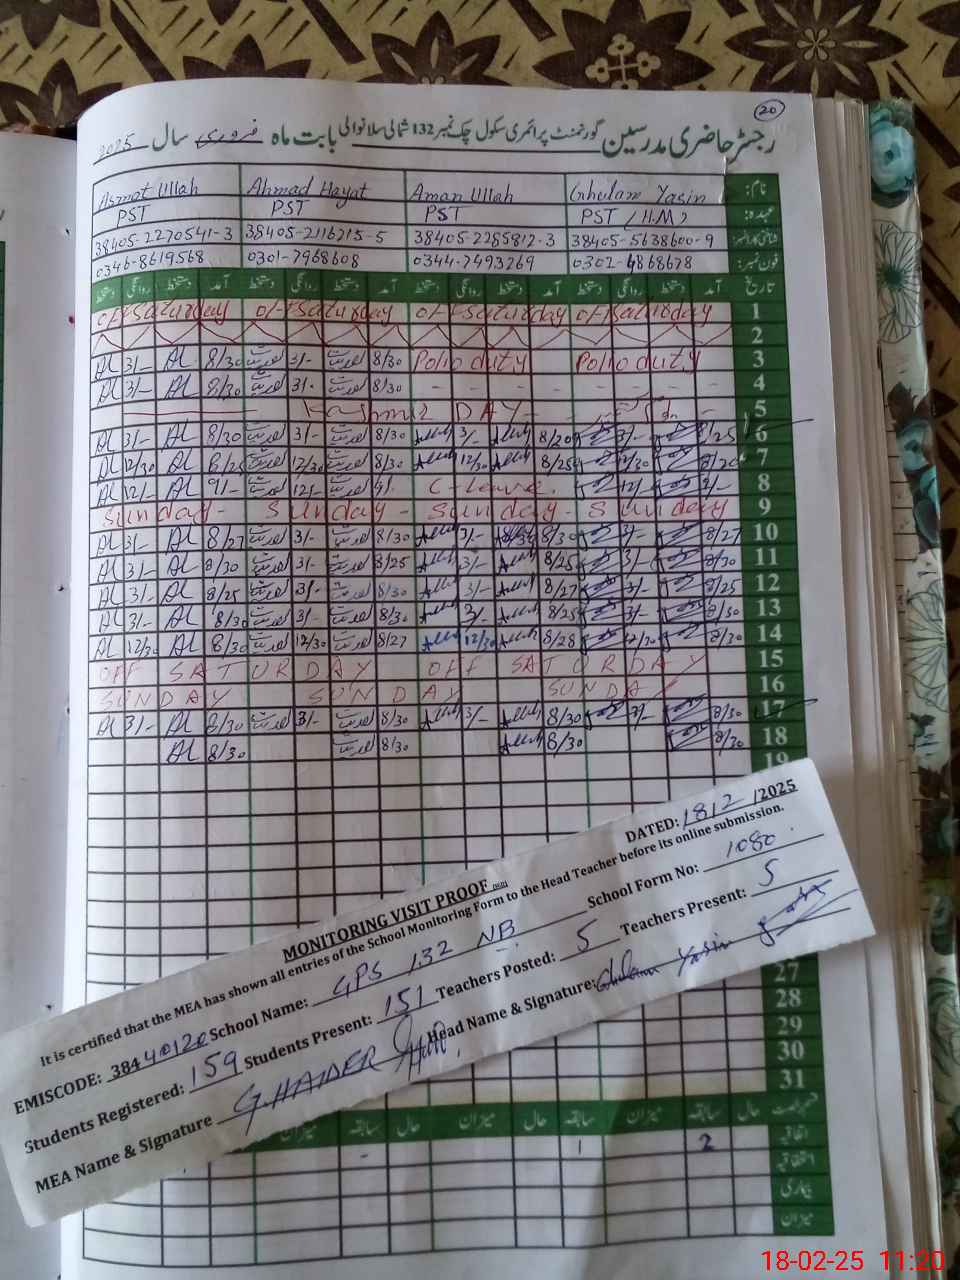 20
رجسٹر حاضری مدرسین گورنمنٹ پرائمری سکول چک نمبر 132 شمالی سلانوالی بابت ماہ فروری سال 2025
نام: Ghulam Yasin Aman Ullah Ahmad Hayat Asmat Ullah
عہدہ: PST / H.M) PST PST PST
شناختی کارڈ نمبر: 38405-5638600-9 38405-2285812-3 38405-2116215-5 38405-2270541-3
فون نمبر: 0302-4868678 0344-7493269 0301-7968608 0346-8619568
تاریخ آمد دستخط روانگی دستخط آمد دستخط روانگی دستخط آمد دستخط روانگی دستخط آمد دستخط روانگی دستخط
off Saturday off Saturday off Saturday off Saturday 1
2
AL 3/- AL 8/30 3/- 8/30 Polio duty Polio duty 3
AL 3/- AL 8/30 3/- 8/30 - - - - - - 4
Kashmir DAY 5
AL 3/- AL 8/30 3/- 8/30 3/- 8/20 3/- 8/25 6
AL 12/30 AL 8/25 12/30 8/30 12/30 8/25 12/30 7
AL 12/- AL 9/- 12/- 9/- C-leave 12/- 9/- 8
Sunday - Sunday - Sunday - Sunday 9
AL 3/- AL 8/27 3/- 8/30 3/- 8/30 3/- 8/27 10
AL 3/- AL 8/30 3/- 8/25 3/- 8/25 3/- 8/30 11
AL 3/- AL 8/25 3/- 8/30 3/- 8/27 3/- 8/25 12
AL 3/- AL 8/30 3/- 8/30 3/- 8/25 3/- 8/30 13
AL 12/30 AL 8/30 12/30 8/27 12/30 8/28 12/30 8/30 14
OFF SATURDAY OFF SATURDAY 15
SUNDAY SUNDAY SUNDAY 16
AL 3/- AL 8/30 3/- 8/30 3/- 8/30 3/- 8/30 17
AL 8/30 8/30 8/30 8/30 18
19
MONITORING VISIT PROOF DATED: 18/2/2025
It is certified that the MEA has shown all entries of the School Monitoring Form to the Head Teacher before its online submission.
EMISCODE: 38440120 School Name: GPS 132 NB School Form No: 1080
Students Registered: 159 Students Present: 151 Teachers Posted: 5 Teachers Present: 5
MEA Name & Signature G.HAIDER Head Name & Signature: Ghulam Yasin
27
28
29
30
31
حال سابقہ میزان حال سابقہ میزان حال سابقہ میزان
اتفاقیہ 2 1 -
استحقاقیہ
بیماری
میزان
18-02-25 11:20